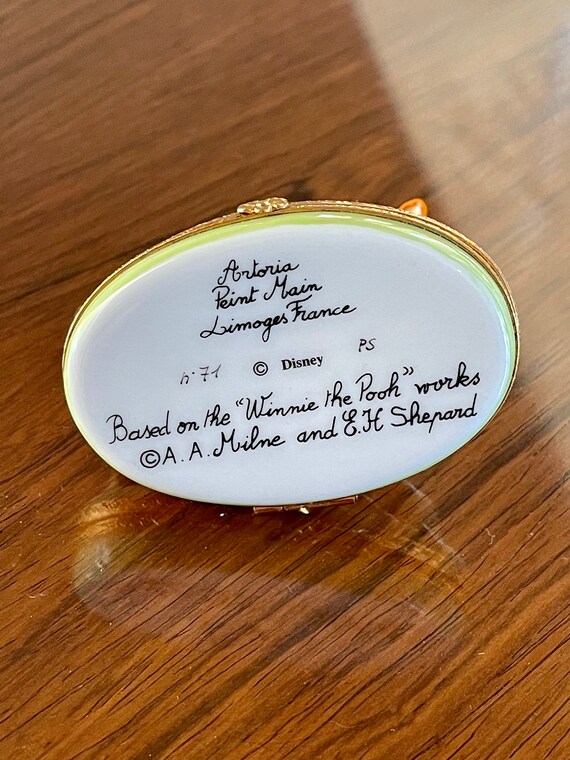 Artoria
Peint Main
Limoges France
n°71 © Disney PS
Based on the "Winnie the Pooh" works
© A. A. Milne and E.H Shepard